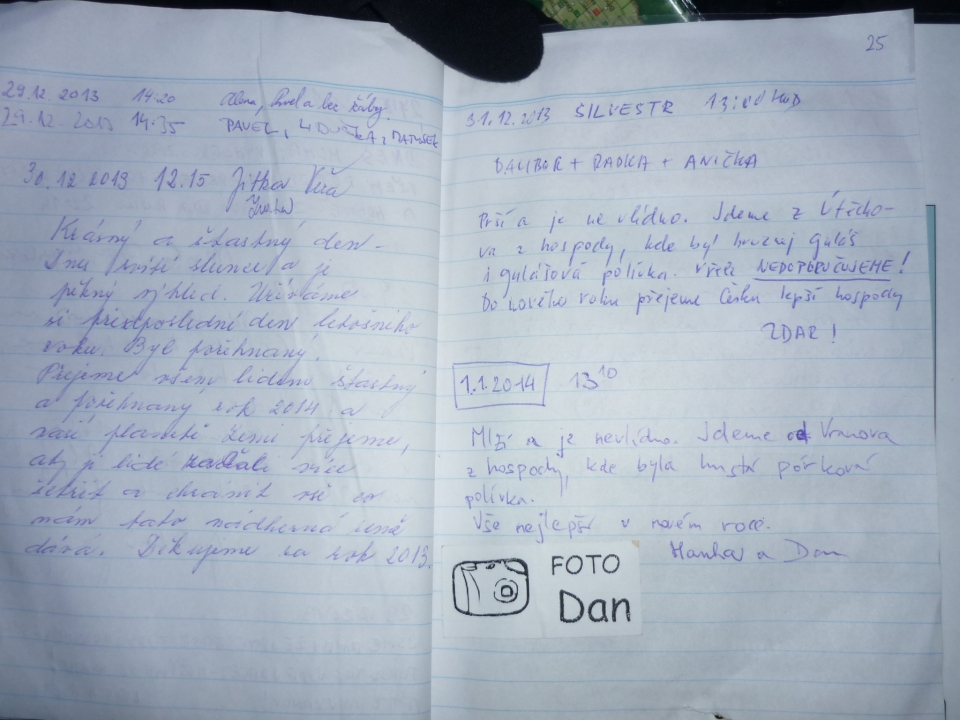 29.12.2013 14:20 Alena, Pavel a bez
29.12.2013 14:35 PAVEL,
30.12 2013 12.15 Jitka Věra
Krásný a šťastný den -
Dnes svítí slunce a je
pěkný výhled. Užíváme
si předposlední den letošního
roku. Byl požehnaný.
Přejeme všem lidem šťastný
a požehnaný rok 2014 a
naší planetě Zemi přejeme,
aby ji lidé začali více
šetřit a chránit vše co
nám tato nádherná země
dává. Děkujeme za rok 2013.
25
31.12.2013 SILVESTR 13:00 HOD
DALIBOR + RADKA + ANIČKA
Prší a je nevlídno. Jdeme z Útěcho-
va z hospody, kde byl hnusnej guláš
i gulášová polívka. Vřele NEDOPORUČUJEME!
Do nového roku přejeme Česku lepší hospody
ZDAR!
1.1.2014 13 10
Mlží a je nevlídno. Jdeme od Vranova
z hospody, kde byla hustá pórková
polívka.
Vše nejlepší v novém roce.
Hanka a Dan
FOTO
Dan